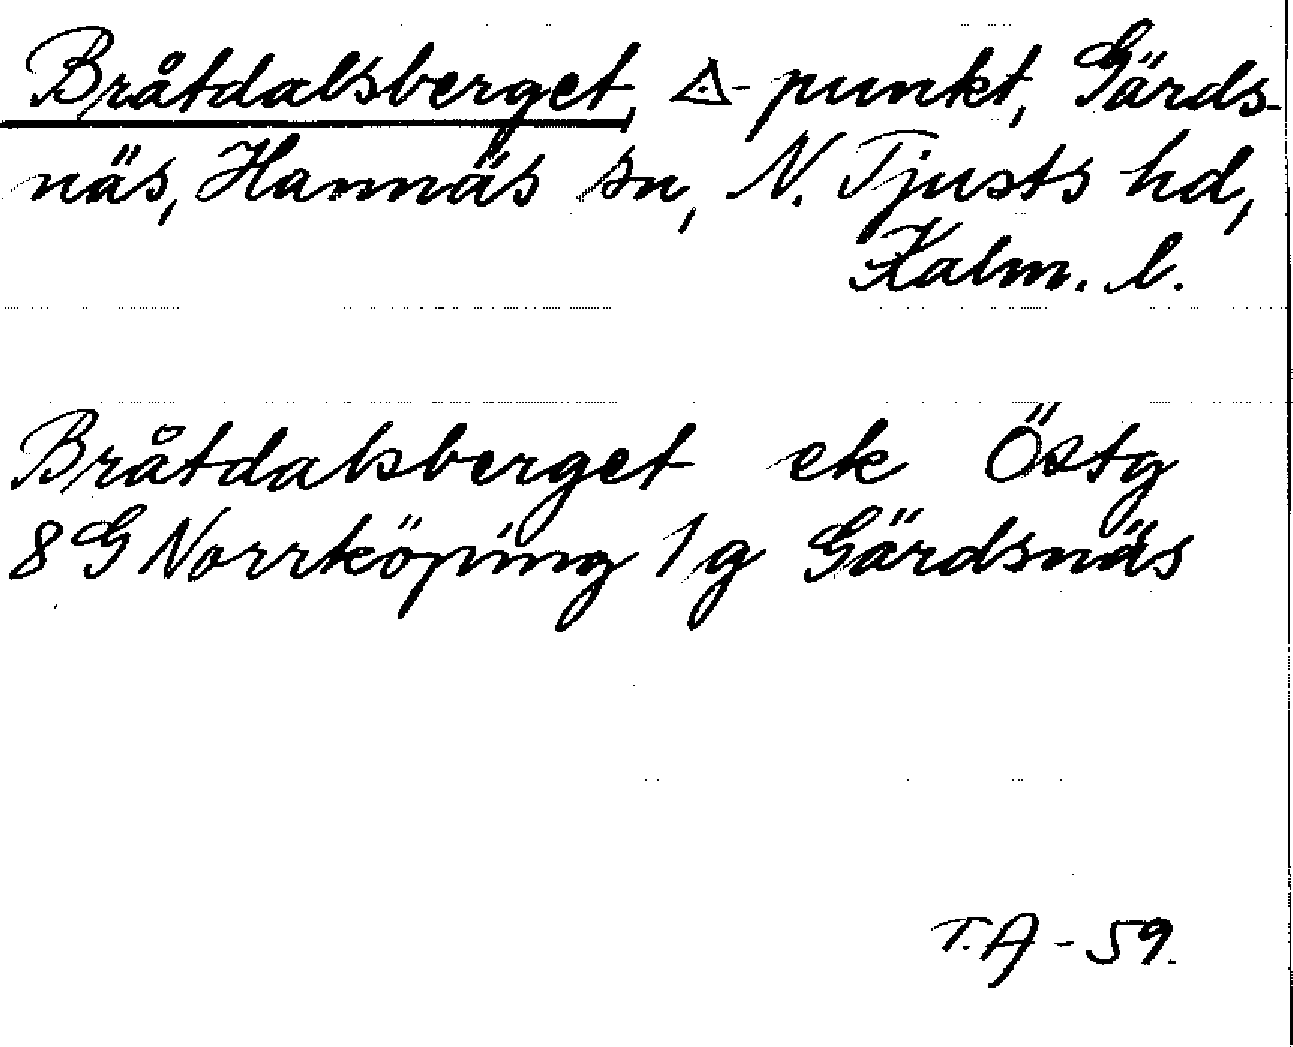 Bråtdalsberget, ◬-punkt, Gärds-
näs, Hannäs sn, N. Tjusts hd,
Kalm. l.
Bråtdalsberget ek Östg
8G Norrköping 1g Gärdsnäs
T.A-59.